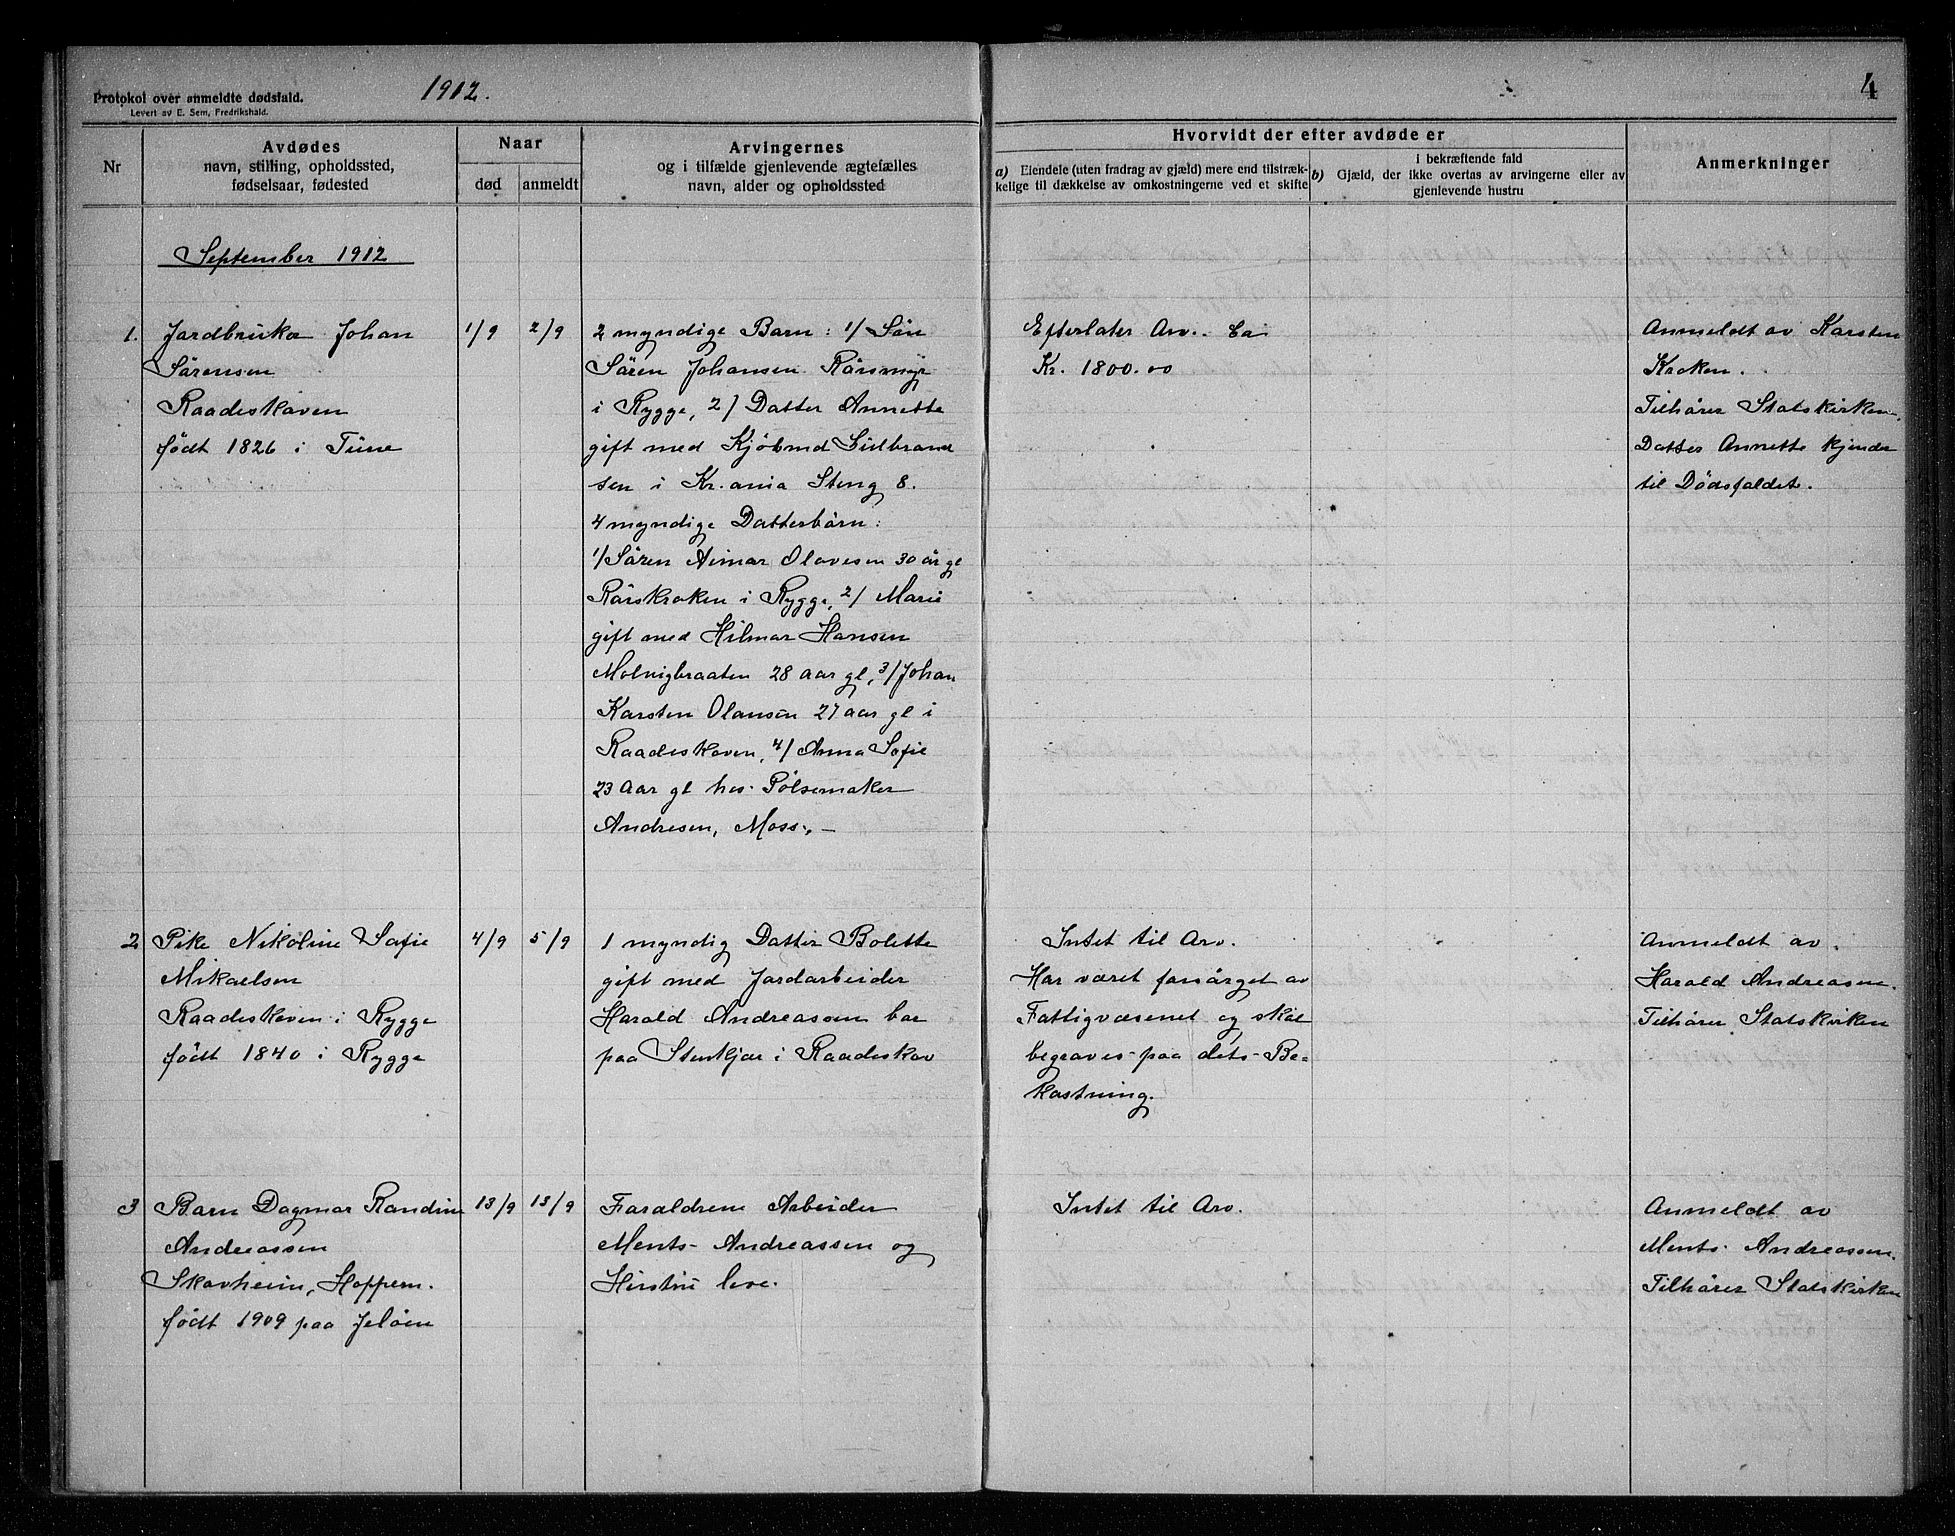 Protokol over anmeldte dødsfald.
Levert av E. Sem, Fredrikshald.
1912.
4
Nr
Avdødes
navn, stilling, opholdssted,
fødselsaar, fødested
Naar
død
anmeldt
Arvingernes
og i tilfælde gjenlevende ægtefælles
navn, alder og opholdssted
Hvorvidt der efter avdøde er
a) Eiendele (uten fradrag av gjæld) mere end tilstræk-
kelige til dækkelse av omkostningerne ved et skifte
i bekræftende fald
b) Gjæld, der ikke overtas av arvingerne eller av
gjenlevende hustru
Anmerkninger
September 1912
1.
Jordbruker Johan
Sörensen
Raadeskoven
født 1826 i Tune
1/9
2/9
2 myndige Barn: 1/ Sön
Sören Johansen Rörsmyr
i Rygge, 2/ Datter Annette
gift med Kjöbmd Gulbrand
sen i Kr.ania Steng 8.
4 myndige Datterbörn:
1/ Sören Aimar Olavesen 30 år gl
Rörskroken i Rygge, 2/ Marie
gift med Hilmar Hansen
Molvigbraaten 28 aar gl, 3/ Johan
Karsten Olansen 27 aar gl i
Raadeskoven, 4/ Anna Sofie
23 aar gl hos Pölsemaker
Andresen, Moss. –
Efterlater Arv. Ca
Kr. 1800.00
Anmeldt av Karsten
Kroken.
Tilhörer Statskirken.
Datter Annette kjender
til Dödsfaldet.
2
Pike Nikoline Sofie
Mikaelsen
Raadeskoven i Rygge
født 1840 i Rygge
4/9
5/9
1 myndig Datter Bolette
gift med Jordarbeider
Harald Andreassen bor
paa Stenkjær i Raadeskov
Intet til Arv.
Har været forsörget av
Fattigvæsenet og skal
begraves paa dets Be-
kostning.
Anmeldt av
Harald Andreasen.
Tilhörer Statskirken
3
Barn Dagmar Randine
Andreassen
Skovheim, Hoppern.
født 1909 paa Jelöen
13/9
13/9
Foraldrene Arbeider
Ments Andreassen og
Hustru leve.
Intet til Arv.
Anmeldt av
Ments Andreassen.
Tilhörer Statskirken